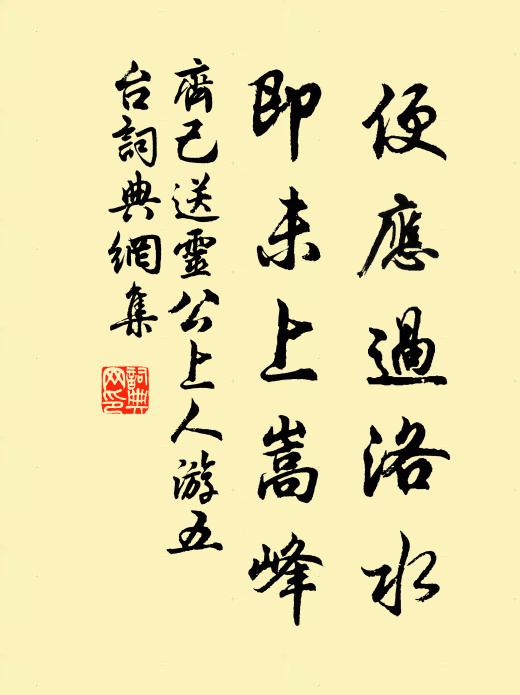 便應過洛水
即未上嵩峰
齊己送靈公上人游五
台詞典網集
詞典
网印